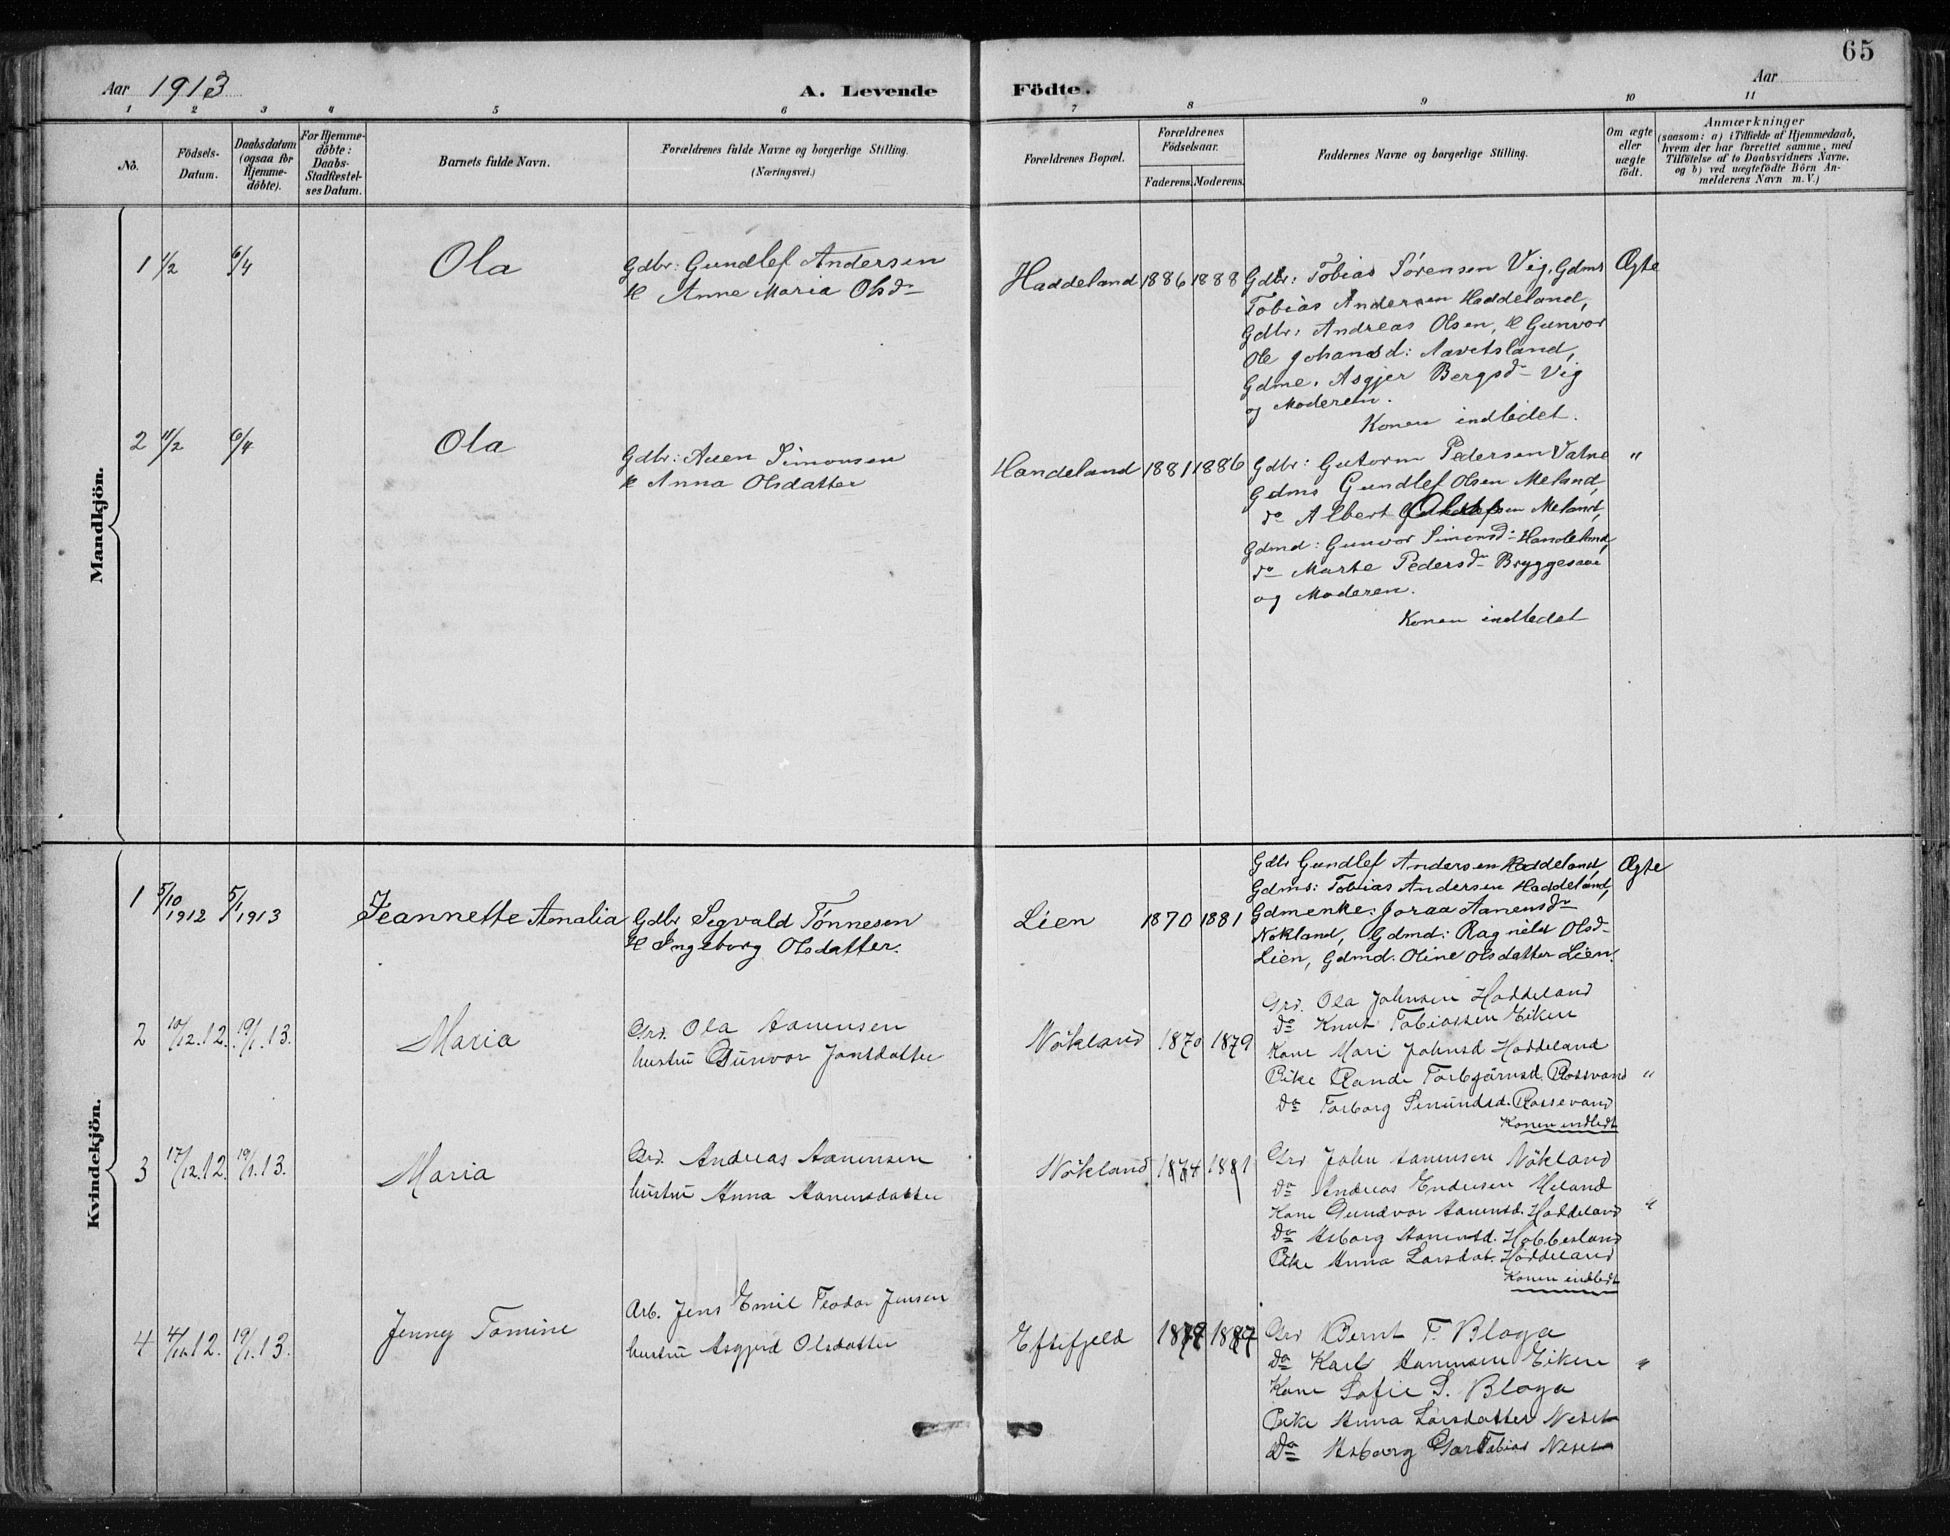 65
Aar 1913
A. Levende
Fødte.
Aar
1 2 3 4 5 6 7 8 9 10 11
No.
Födsels-
Datum.
Daabsdatum
(ogsaa for
Hjemme-
döbte).
For Hjemme-
döbte:
Daabs-
Stadfæstel-
ses Datum.
Barnets fulde Navn.
Forældrenes fulde Navne og borgerlige Stilling.
(Næringsvei.)
Forældrenes Bopæl.
Forældrenes
Födselsaar.
Faderens. Moderens.
Faddernes Navne og borgerlige Stilling.
Om ægte
eller
uægte
födt.
Anmærkninger
(saasom: a) i Tilfælde af Hjemmedaab,
hvem der har forrettet samme, med
Tilföielse af to Daabsvidners Navne.
og b) ved uægtefödte Börn An-
melderens Navn m. V.)
Mandkjön.
1 1/2 6/4 Ola
Gdbr: Gundlef Andersen
H Anne Maria Olsd
Haddeland 1886 1888
Gdbr: Tobias Sørensen Vig, Gdms
Tobias Andersen Haddeland,
Gdbr: Andreas Olsen, H Gunvor
Ole Johansd: Navetsland,
Gdme. Asgjer Bergsd Vig
og Moderen.
Konen indledet.
Ægte
2 11/2 6/4 Ola
Gdbr: Aaen Simonsen
H Anna Olsdatter
Handeland 1881 1886
Gdbr: Gutorm Pedersen Vatne
Gdms Gundlef Olsen Meland,
do Albert Meland,
Gdmd: Gunvor Simonsd Handeland,
do Marte Pedersd Bryggesaae
og Moderen.
Konen indledet
"
Kvindekjön.
1 5/10 1912 5/1 1913 Jeannette Amalia
Gdbr Segvald Tönnesen
H Ingeborg Olsdatter.
Lien 1870 1881
Gdbr Gundlef Andersen Haddeland,
Gdms: Tobias Andersen Haddeland,
Gdmenke: Joraa Aanensd
Nökland, Gdmd: Ragnild Olsd
Lien, Gdmd. Oline Olsdatter Lien.
Ægte
2 10/12.12. 19/1.13. Maria
Grd. Ola Aanensen
hustru Gunvor Jonsdatter
Nökland 1870 1879
Grd. Ola Johnsen Haddeland
Do Knut Tobiassen Eiken
Kone Mari Johnsd Haddeland
Pike Rande Torbjörnsd. Rossevand
Do Torborg Simundsd. Rossevand
Konen indledt
"
3 17/12.12. 19/1.13. Maria
Grd. Andreas Aanensen
hustru Anna Aanensdatter
Nökland 1874 1881
Grd John Aanensen Nökland
Do Andreas Endresen Meland
Kone Gundvor Aanensd. Haddeland
Do Asborg Aanensd. Hobbesland
Pike Anna Larsdat. Haddeland
Konen indledt
"
4 12. 19/1.13. Jenny Tomine
Arb. Jens Emil Teodor Jensen
hustru Asgjerd Olsdatter
Eftefjeld 1887
Grd Bernt F. Bloga
Do Karl Aanensen Eiken
Kone Sofie S. Bloga
Pike Anna Larsdatter Neset
Do Asborg Tobias Neset
"